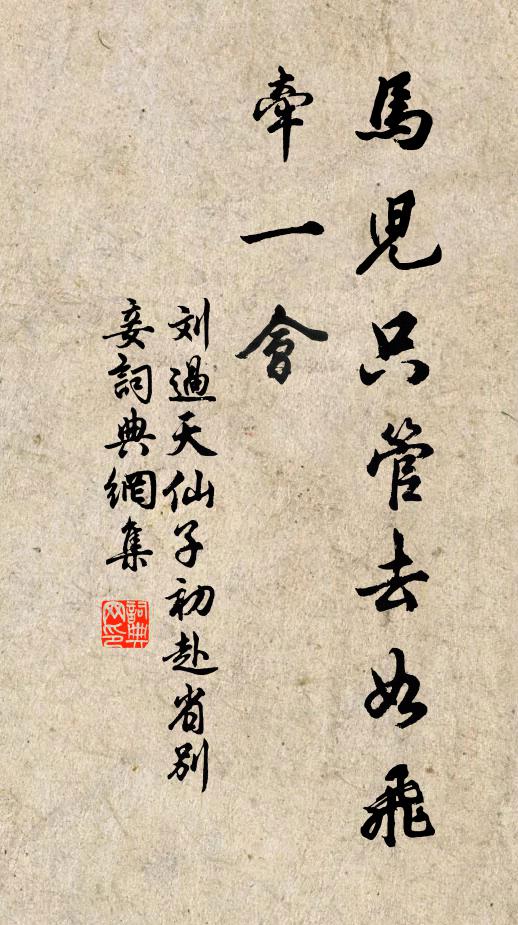 馬兒只管去如飛
牽一會
刘過天仙子初赴省別
妾詞典網集
詞典
网印